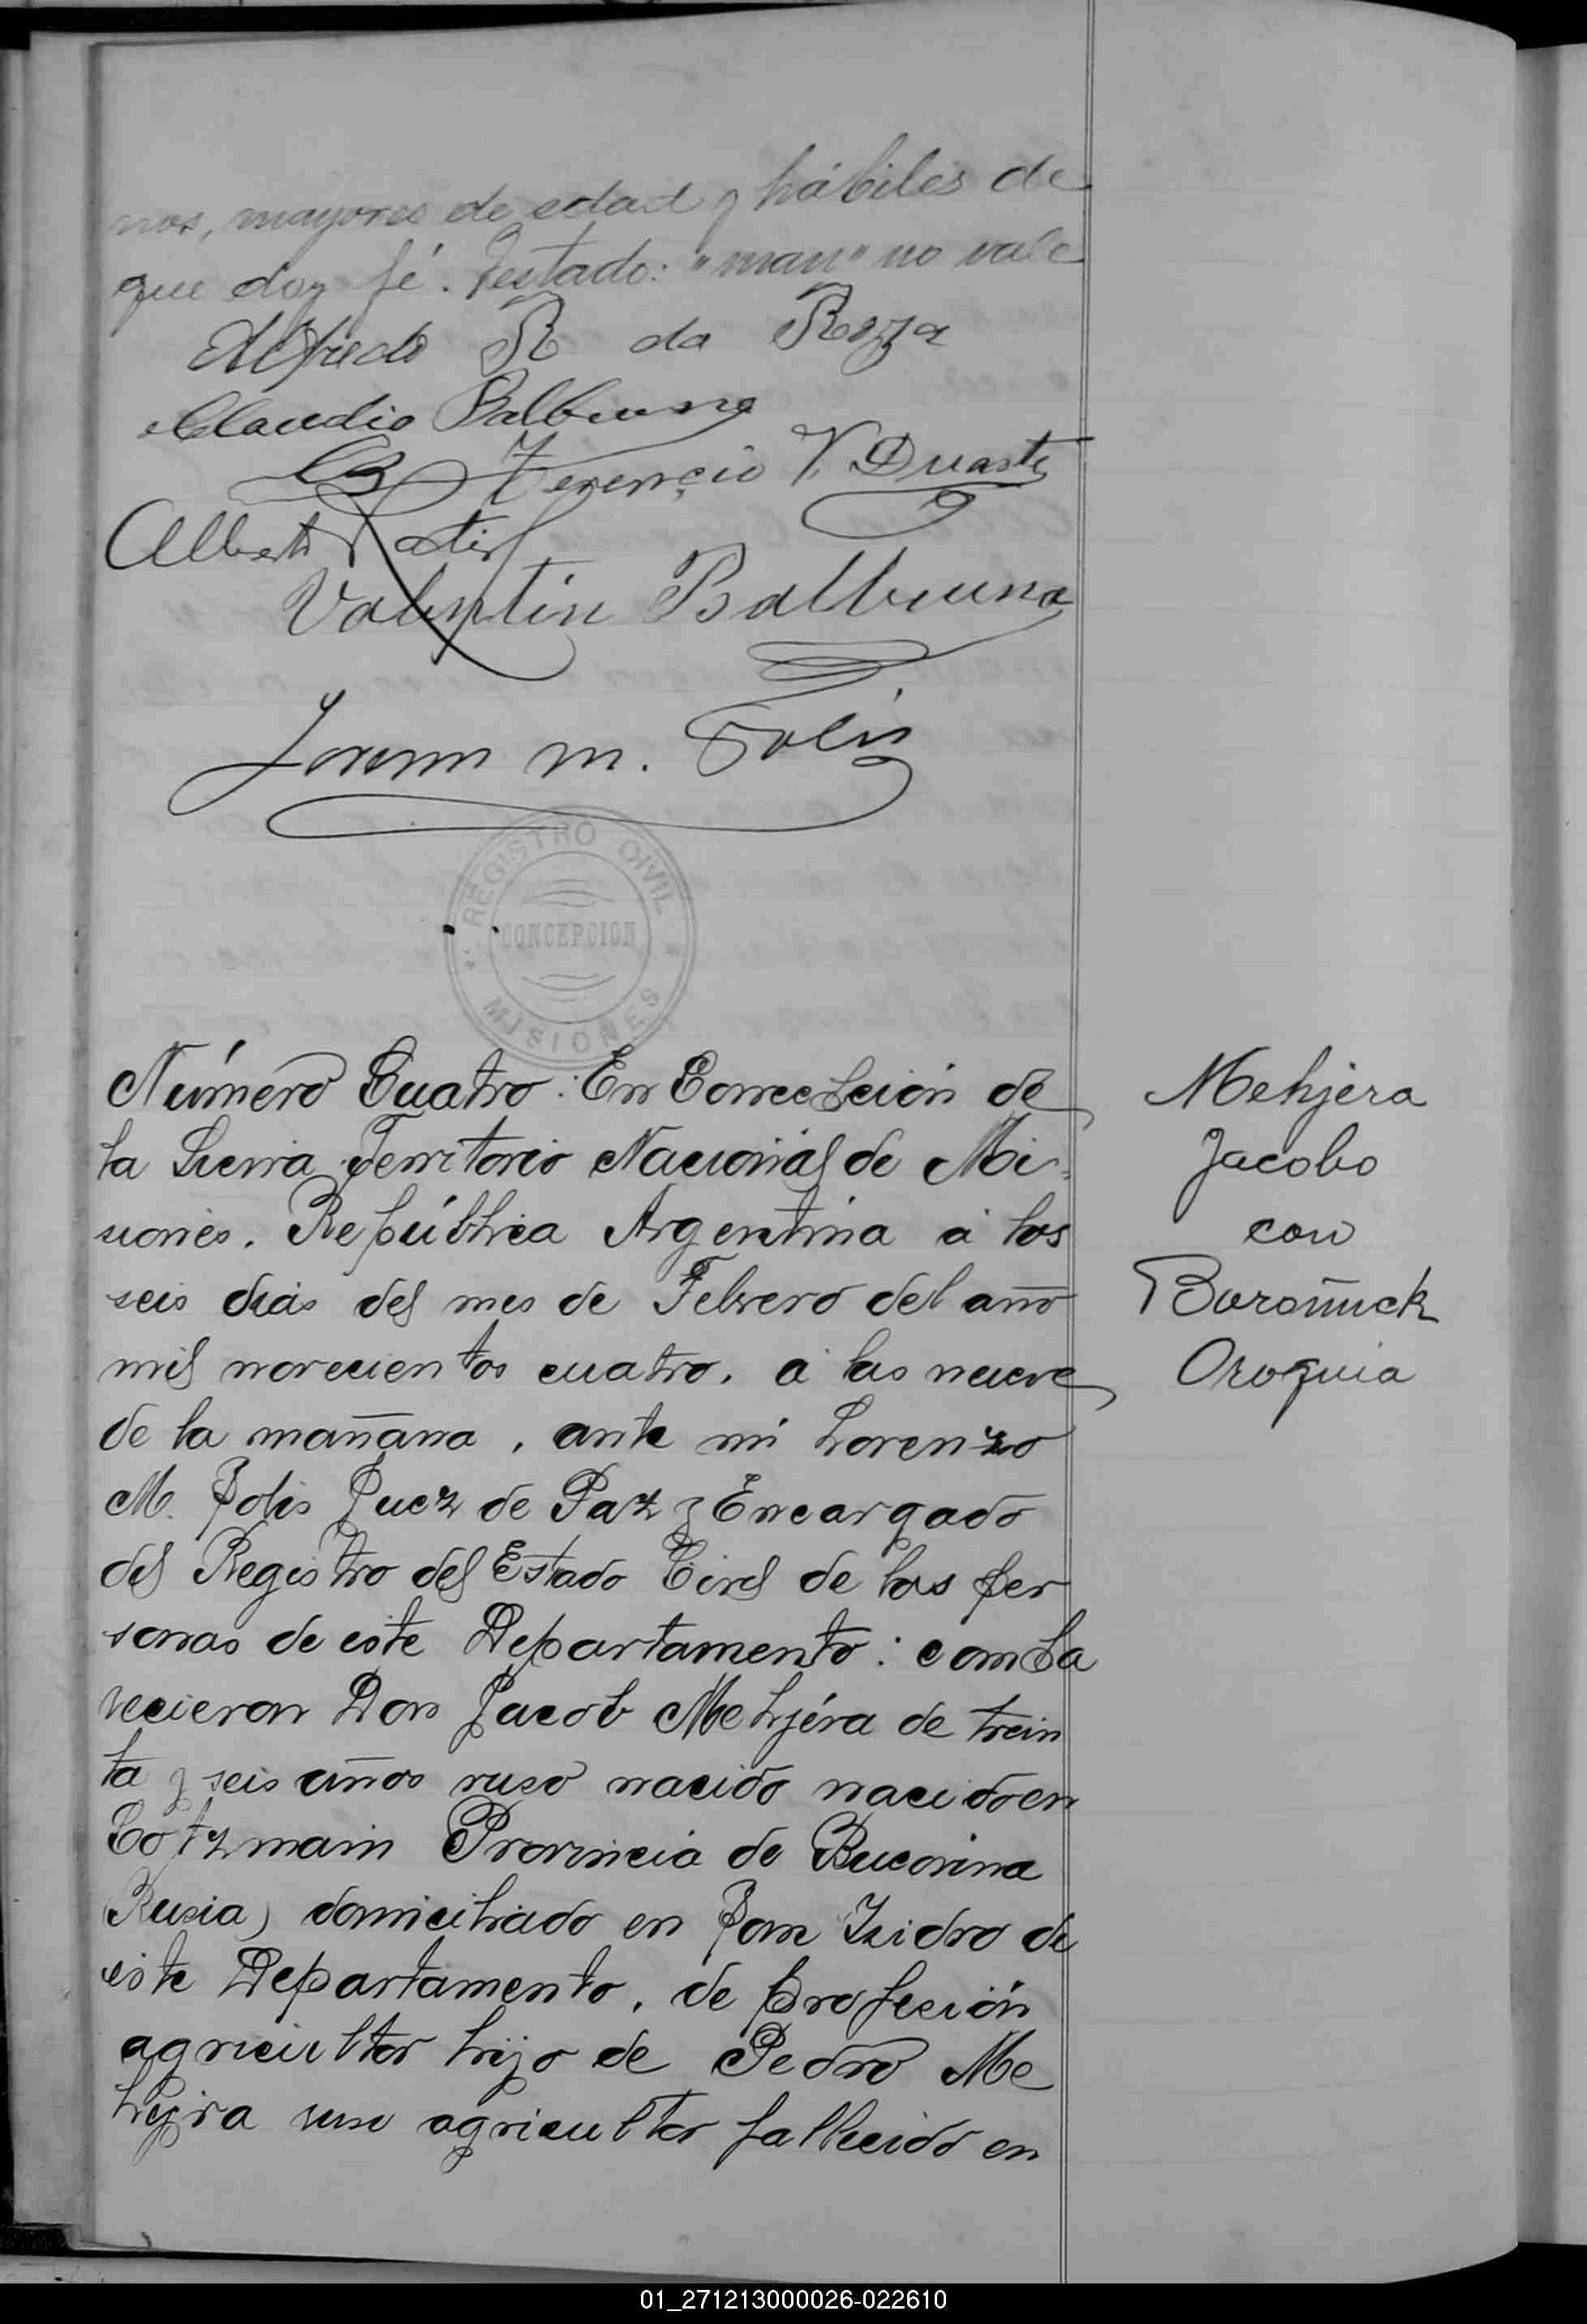 nos, mayores de edad y hábiles de
que doy fé. Testado: "man" no vale
Alfredo R da Roza
Claudio Balbuena
CB Terencio V. Duarte
Valentin Balbuena
Lorenzo M. Solis
REGISTRO CIVIL
CONCEPCION
MISIONES
Número Cuatro: En Concepción de
la Sierra Territorio Nacional de Mi-
siones. República Argentina á los
seis dias del mes de Febrero del año
mil novecientos cuatro, á las nueve
de la mañana, ante mi Lorenzo
M. Solis Juez de Paz y Encargado
del Registro del Estado Civil de las per
sonas de este Departamento: compa
recieron Don Jacob Mehjéra de trein
ta y seis años ruso nacido nacido en
Cotzmain Provincia de Bucovina
(Rusia) domiciliado en San Izidro de
este Departamento, de profesión
agricultor hijo de Pedro Me
hjera ruso agricultor fallecido en
Mehjera
Jacobo
con
Buroñuck
Oroquia
01_271213000026-022610